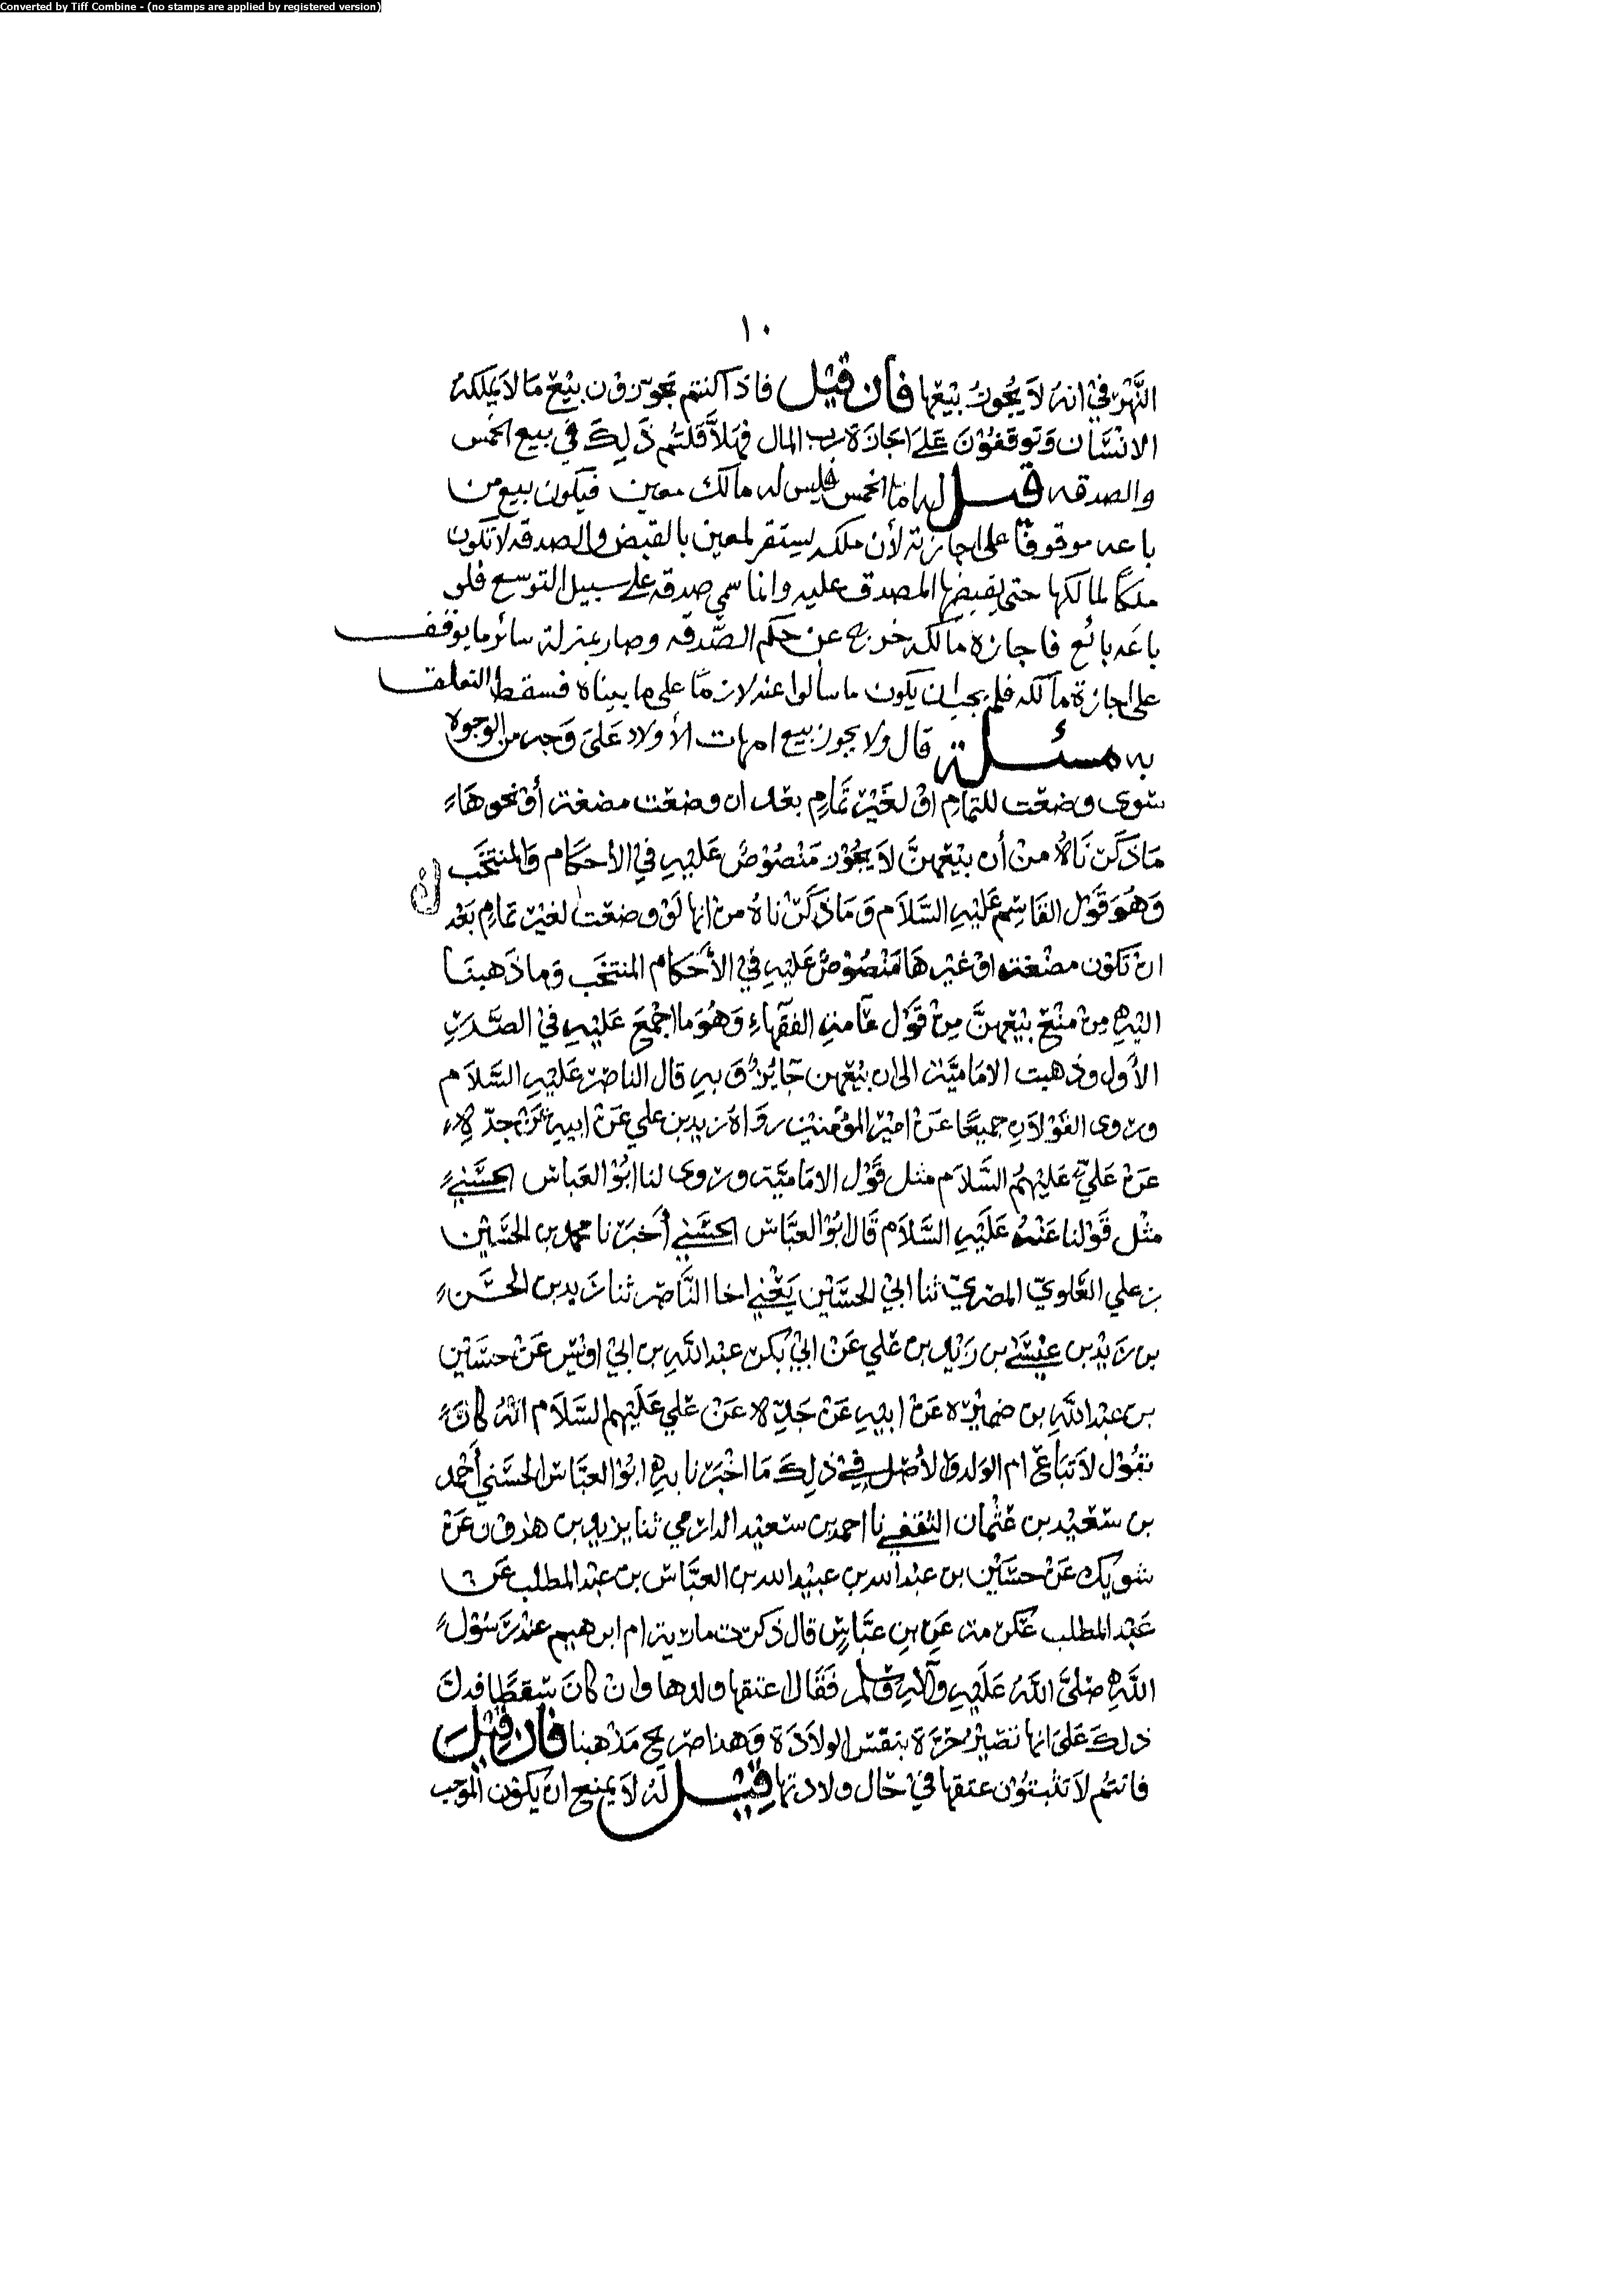 Converted by Tiff Combine - (no stamps are applied by registered version)
١٠
النَّهْر في انه لا يجوز بيعها فان قيل فاذا كنتم تجوزون بيع ما لا يملكه
الانسان وتوقفون على اجازة رب المال فهلا قلتم ذلك في بيع الخمس
والصدقه قيل له اما الخمس فليس له مالك معين فيكون بيع من
باعه موقوفا على اجازته لأن ملكه يستقر لمعين بالقبض والصدقه لا تكون
ملكا لمالكها حتى يقبضها المصدق عليه وانما سمي صدقه على سبيل التوسع فلو
باعه بائع فاجازه مالكه خرج عن حكم الصدقه وصار بمنزلة سائر ما يوقف
على اجازة مالكه فلم يجب ان يكون ما سألوا عنه لازما على ما بيناه فسقط التعلق
به مسئلة قال ولا يجوز بيع امهات الأولاد على وجه من الوجوه
سوى وضعت للتمام او لغير تمام بعد ان وضعت مضغة أو نحوها
ما ذكرناه من أن بيعهن لا يجوز منصوص عليه في الأحكام والمنتخب
وهو قول القاسم عليه السلام وما ذكرناه من انها لو وضعت لغير تمام بعد
ان تكون مضغة او غيرها منصوص عليه في الأحكام المنتخب وما ذهبنا
اليه من منع بيعهن من قول عامة الفقهاء وهو ما اجمع عليه في الصدر
الأول وذهبت الامامية الى ان بيعهن جايز وبه قال الناصر عليه السلام
وروى القولان جميعا عن امير المؤمنين رواه زيد بن علي عن ابيه عن جده
عن علي عليهم السلام مثل قول الامامية وروى لنا ابو العباس الحسني
مثل قولنا عنه عليه السلام قال ابو العباس الحسني أخبرنا محمد بن الحسين
بن علي العلوي المصري ثنا ابي الحسين يعني اخا الناصر ثنا زيد بن الحسن
بن زيد بن عيسى بن زيد بن علي عن ابي بكر عبد الله بن ابي اويس عن حسين
بن عبد الله بن ضميره عن ابيه عن جده عن علي عليهم السلام انه كان
يقول لا تباع ام الولد والأصل في ذلك ما اخبرنا به ابو العباس الحسني أحمد
بن سعيد بن عثمان الثقفي نا احمد بن سعيد الدارمي ثنا يزيد بن هرون عن
شويك عن حسين بن عبد الله بن عبيد الله بن العباس بن عبد المطلب عن
عبد المطلب عكرمة عن بن عباس قال ذكرت مارية ام ابرهيم عند رسول
الله صلى الله عليه وآله وسلم فقال اعتقها ولدها وان كان سقطا فدل
ذلك على انها تصير محررة بنفس الولادة وهذا صريح مذهبنا فان قيل
فانتم لا تثبتون عتقها في حال ولادتها قيل له لا يمنع ان يكون الموجب